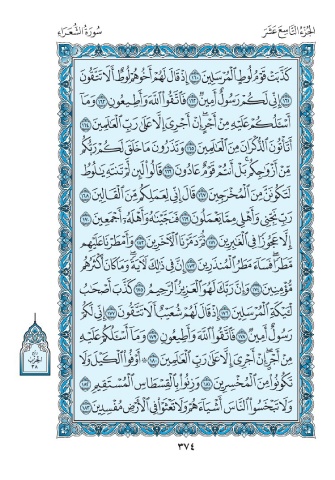 الجزء التاسع عشر
سورة الشعراء
كَذَّبَتْ قَوْمُ لُوطٍ ٱلْمُرْسَلِينَ ١٦٠ إِذْ قَالَ لَهُمْ أَخُوهُمْ لُوطٌ أَلَا تَتَّقُونَ
١٦١ إِنِّي لَكُمْ رَسُولٌ أَمِينٌ ١٦٢ فَٱتَّقُوا۟ ٱللَّهَ وَأَطِيعُونِ ١٦٣ وَمَآ
أَسْـَٔلُكُمْ عَلَيْهِ مِنْ أَجْرٍ إِنْ أَجْرِىَ إِلَّا عَلَىٰ رَبِّ ٱلْعَٰلَمِينَ ١٦٤
أَتَأْتُونَ ٱلذُّكْرَانَ مِنَ ٱلْعَٰلَمِينَ ١٦٥ وَتَذَرُونَ مَا خَلَقَ لَكُمْ رَبُّكُم
مِّنْ أَزْوَٰجِكُم بَلْ أَنتُمْ قَوْمٌ عَادُونَ ١٦٦ قَالُوا۟ لَئِن لَّمْ تَنتَهِ يَٰلُوطُ
لَتَكُونَنَّ مِنَ ٱلْمُخْرَجِينَ ١٦٧ قَالَ إِنِّى لِعَمَلِكُم مِّنَ ٱلْقَالِينَ ١٦٨
رَبِّ نَجِّنِى وَأَهْلِى مِمَّا يَعْمَلُونَ ١٦٩ فَنَجَّيْنَٰهُ وَأَهْلَهُۥٓ أَجْمَعِينَ ١٧٠
إِلَّا عَجُوزًا فِى ٱلْغَٰبِرِينَ ١٧١ ثُمَّ دَمَّرْنَا ٱلْءَاخَرِينَ ١٧٢ وَأَمْطَرْنَا عَلَيْهِم
مَّطَرًا فَسَآءَ مَطَرُ ٱلْمُنذَرِينَ ١٧٣ إِنَّ فِى ذَٰلِكَ لَءَايَةً وَمَا كَانَ أَكْثَرُهُم
مُّؤْمِنِينَ ١٧٤ وَإِنَّ رَبَّكَ لَهُوَ ٱلْعَزِيزُ ٱلرَّحِيمُ ١٧٥ كَذَّبَ أَصْحَٰبُ
لْـَٔيْكَةِ ٱلْمُرْسَلِينَ ١٧٦ إِذْ قَالَ لَهُمْ شُعَيْبٌ أَلَا تَتَّقُونَ ١٧٧ إِنِّى لَكُمْ
رَسُولٌ أَمِينٌ ١٧٨ فَٱتَّقُوا۟ ٱللَّهَ وَأَطِيعُونِ ١٧٩ وَمَآ أَسْـَٔلُكُمْ عَلَيْهِ
مِنْ أَجْرٍ إِنْ أَجْرِىَ إِلَّا عَلَىٰ رَبِّ ٱلْعَٰلَمِينَ ١٨٠ أَوْفُوا۟ ٱلْكَيْلَ وَلَا
تَكُونُوا۟ مِنَ ٱلْمُخْسِرِينَ ١٨١ وَزِنُوا۟ بِٱلْقِسْطَاسِ ٱلْمُسْتَقِيمِ ١٨٢
وَلَا تَبْخَسُوا۟ ٱلنَّاسَ أَشْيَآءَهُمْ وَلَا تَعْثَوْا۟ فِى ٱلْأَرْضِ مُفْسِدِينَ ١٨٣
الحزب
٣٨
٣٧٤